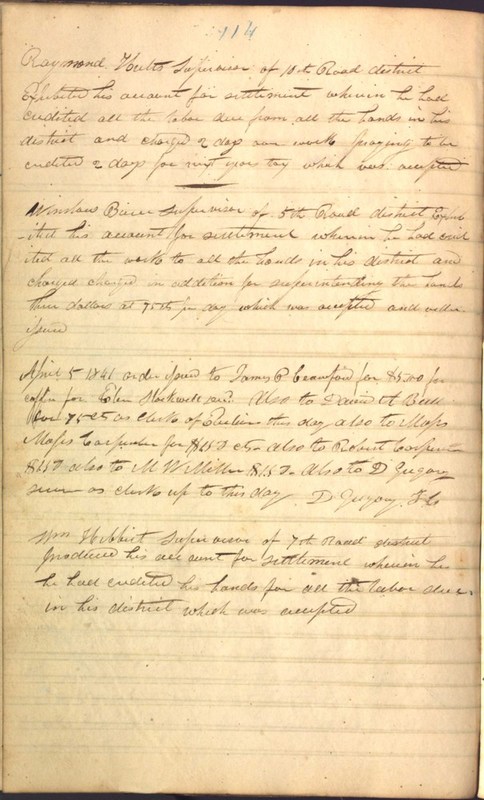 114
Raymond Hults Supervisor of 10th Road district
Exhibited his account for settlement wherein he had
credited all the labor due from all the hands in his
district and charged 2 days our work praying to be
credited 2 days for next years tax which was accepted
Winslow Supervisor of 5th Road district Exhib
-ited his account for settlement wherein he had cred
ited all the work to all the hands in his district and
charged charged in addition for superintending the hands
three dollars at 75cts per day which was accepted and order
issued
April 5 1841 order issued to James P Crawford for $5.00 for
coffin for Blackwell and Also to David A
for 75 cts as clerk of Election this day also to Moses
Moses Carpenter for $ cts also to Robert Carpenter
$ also to M W Miller $ Also to D Gregory
as clerk up to this day D Gregory
Wm Hibbert Supervisor of 7th Road district
produced his account for settlement wherein he
he had credited his hands for all the labor due
in his district which was accepted